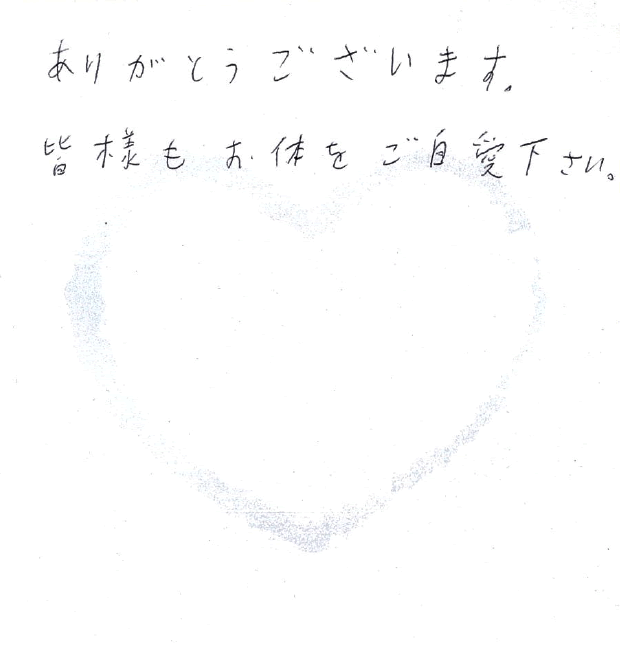 ありがとうございます。
皆様もお体をご自愛下さい。